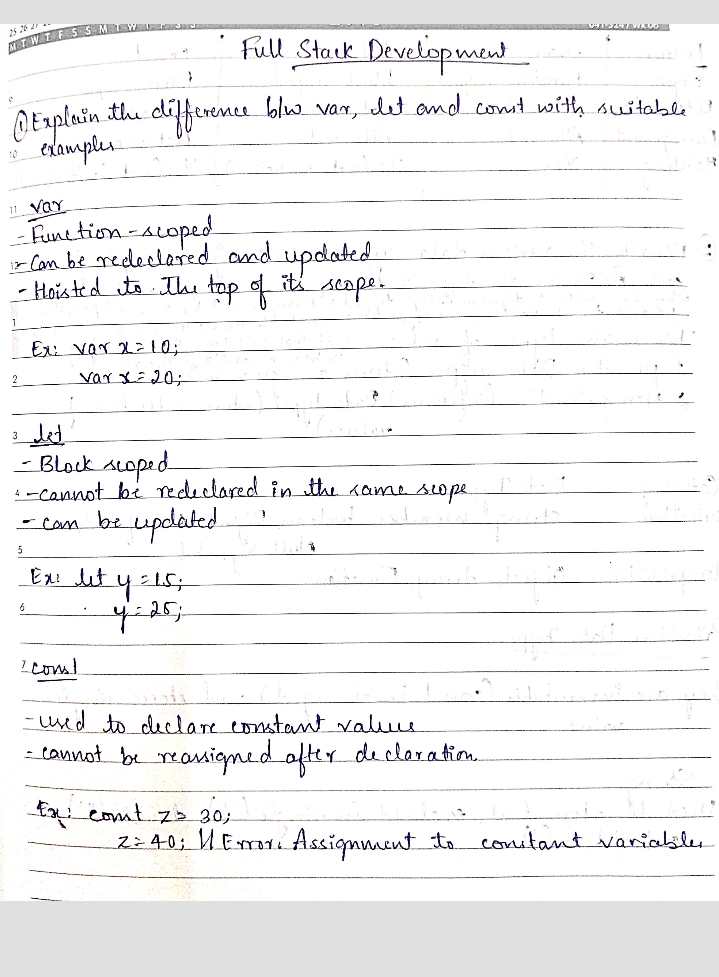 25 26 27
M T W T F S S M T W T F S S
Full Stack Development
① Explain the difference b/w var, let and const with suitable
10 examples
11 var
- Function-scoped
12 - Can be redeclared and updated
- Hoisted to the top of its scope.
1
Ex: var x=10;
2 var x=20;
3 let
- Block scoped
4 - cannot be redeclared in the same scope
- can be updated
5
Ex: let y=15;
6 y=25;
7 const
- used to declare constant values
- cannot be reassigned after declaration.
Ex: const z=30;
z=40; // Error: Assignment to constant variables